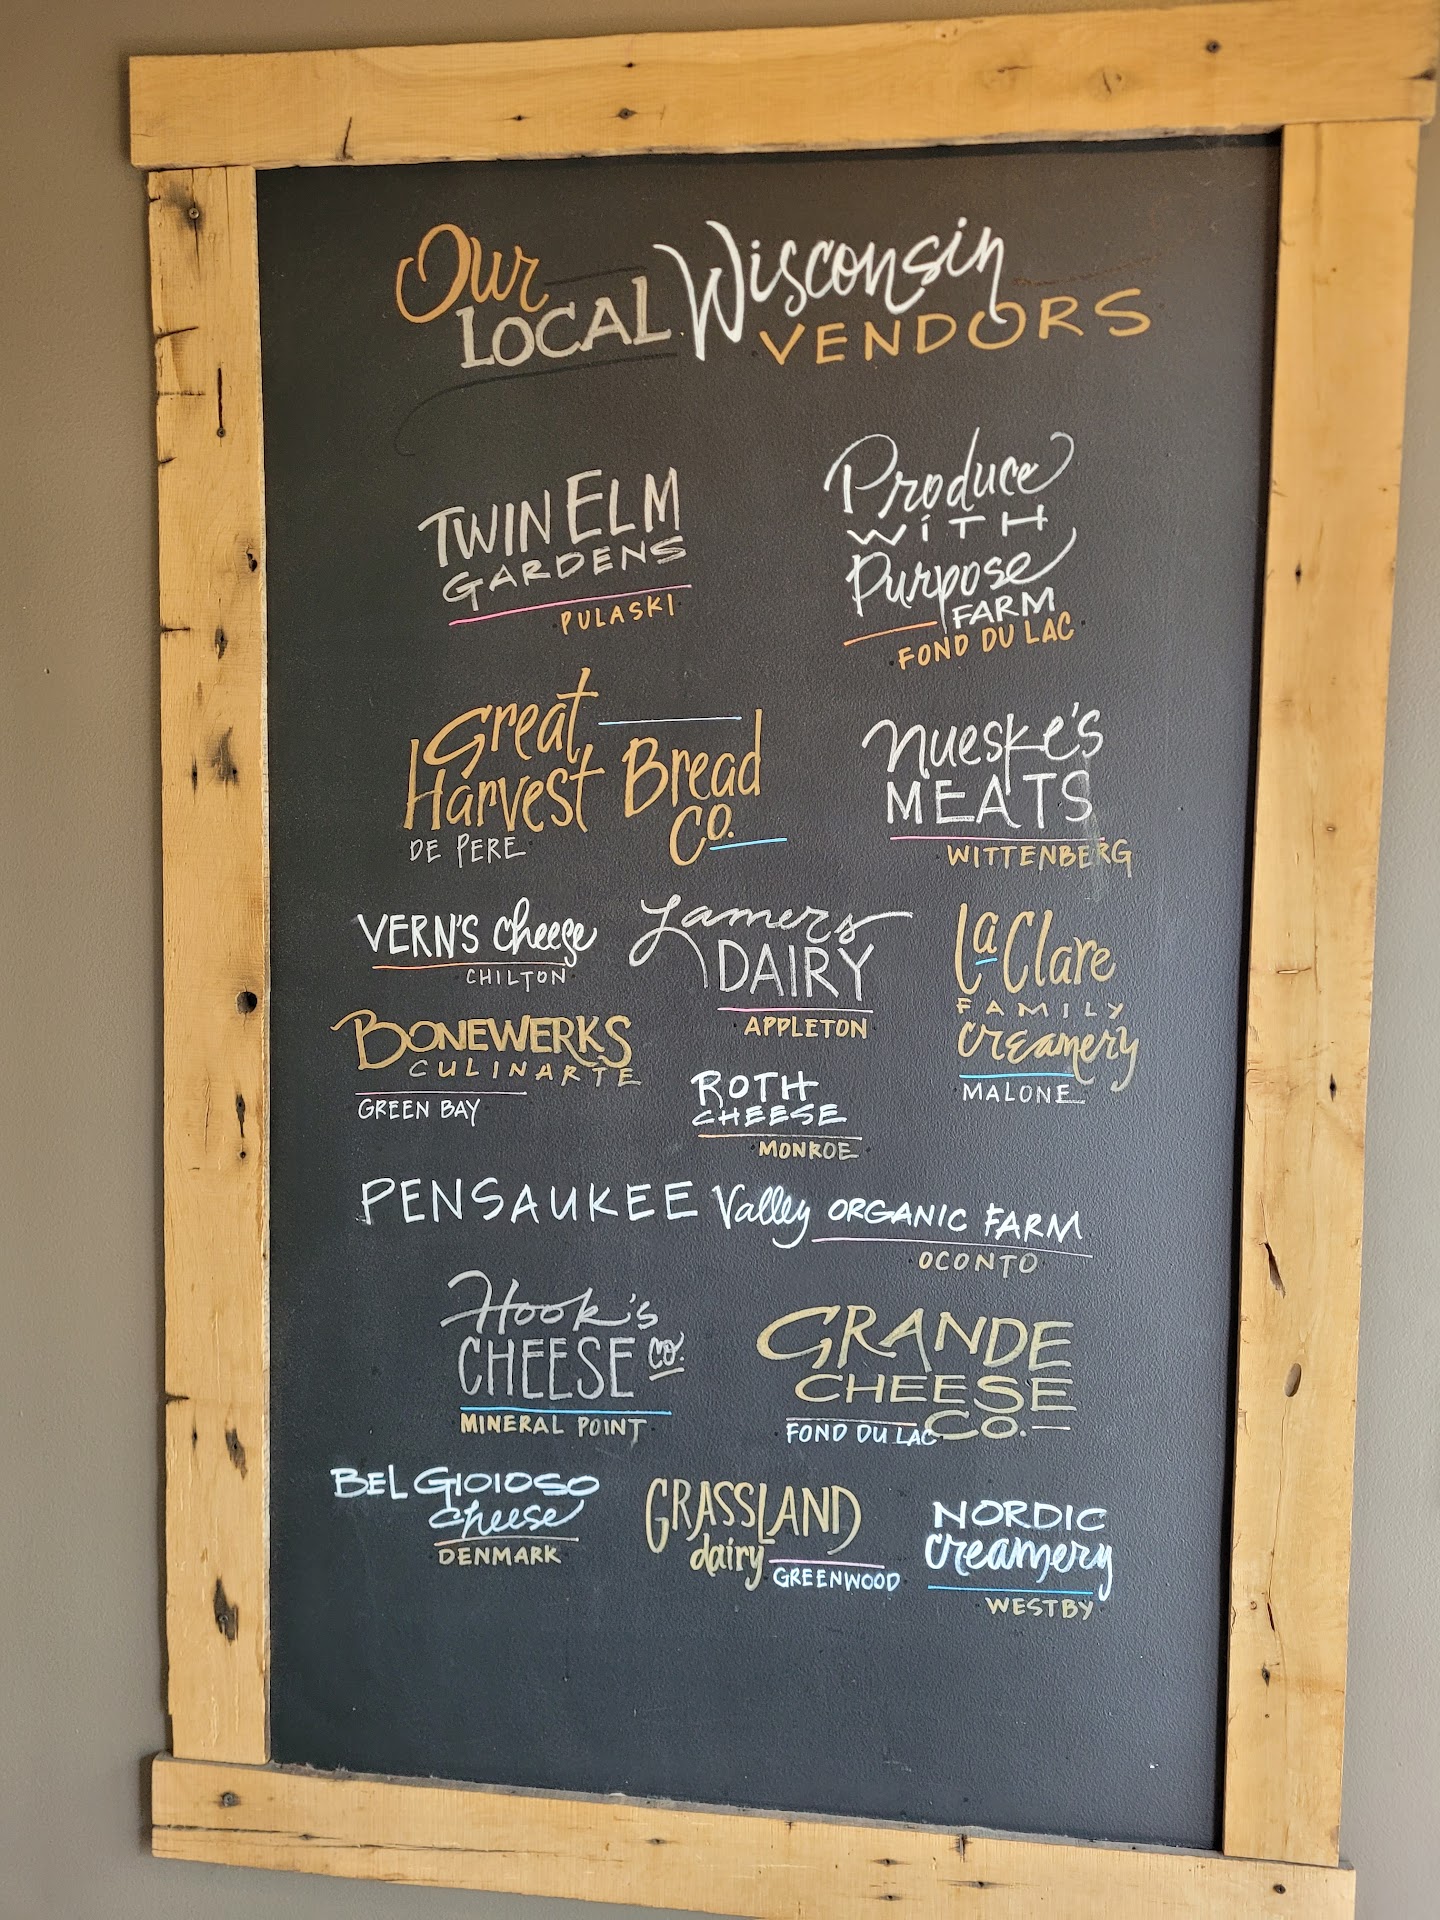 Our LOCAL Wisconsin VENDORS
TWIN ELM
GARDENS
PULASKI
Produce
WITH
Purpose
FARM
FOND DU LAC
Great
Harvest Bread
Co.
DE PERE
Nueske's
MEATS
WITTENBERG
VERN'S cheese
CHILTON
Lamers
DAIRY
APPLETON
La Clare
FAMILY
creamery
MALONE
BONEWERKS
CULINARTE
GREEN BAY
ROTH
CHEESE
MONROE
PENSAUKEE Valley ORGANIC FARM
OCONTO
Hook's
CHEESE CO.
MINERAL POINT
GRANDE
CHEESE
CO.
FOND DU LAC
BEL GIOIOSO
cheese
DENMARK
GRASSLAND
dairy
GREENWOOD
NORDIC
creamery
WESTBY